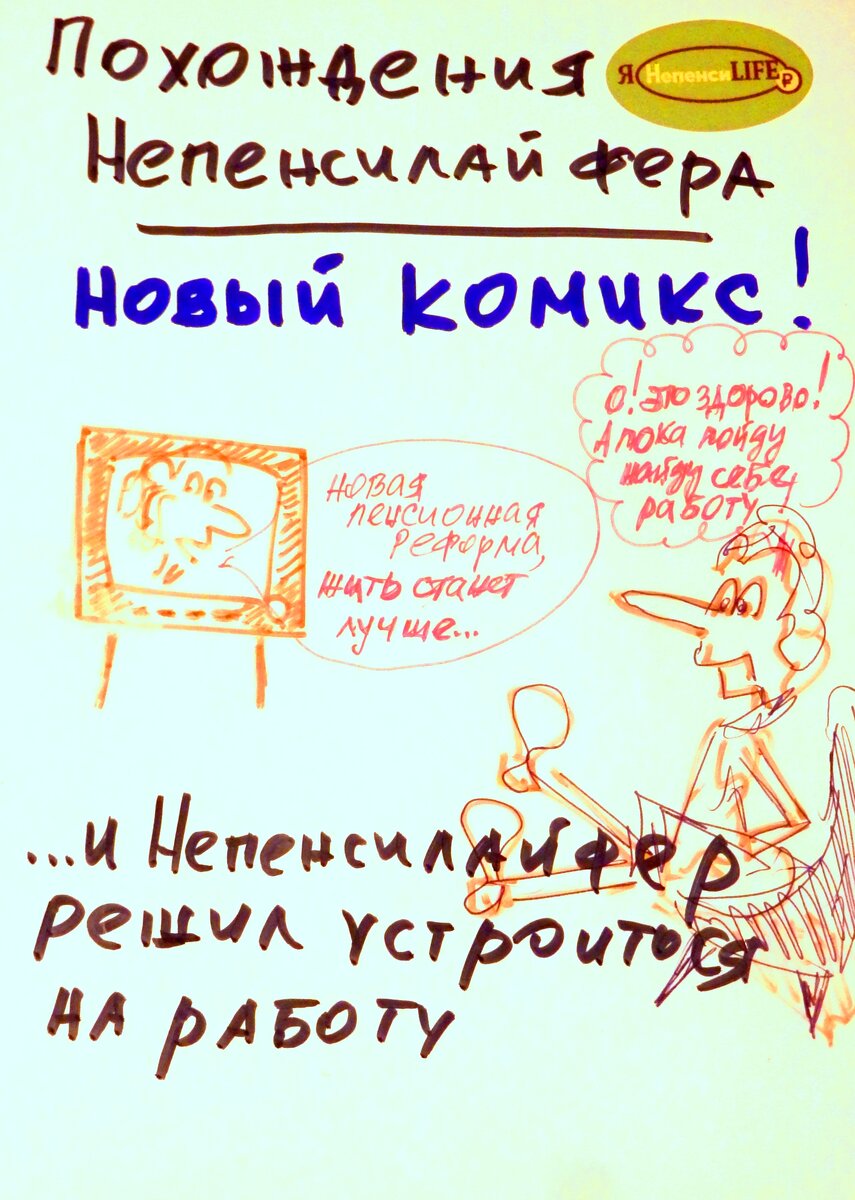 Похождения
Я НепенсиLIFEр
Непенсилайфера
Новый комикс!
О! это здорово!
А пока пойду
найду себе
работу
Новая
пенсионная
реформа,
жить станет
лучше...
...и Непенсилайфер
решил устроиться
на работу